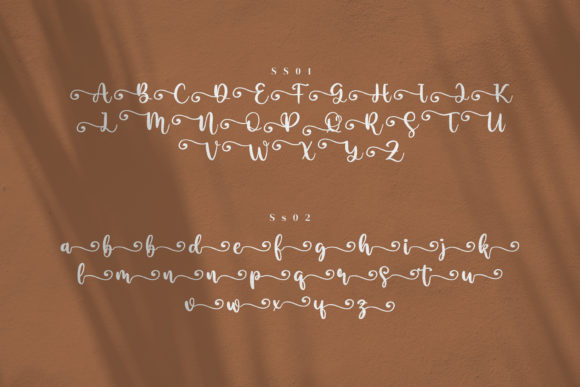 SS01
A B C D E F G H I J K
L M N O P Q R S T U
V W X Y Z
Ss02
a b b d e f g h i j k
l m n n p q r s t u
v w x y z